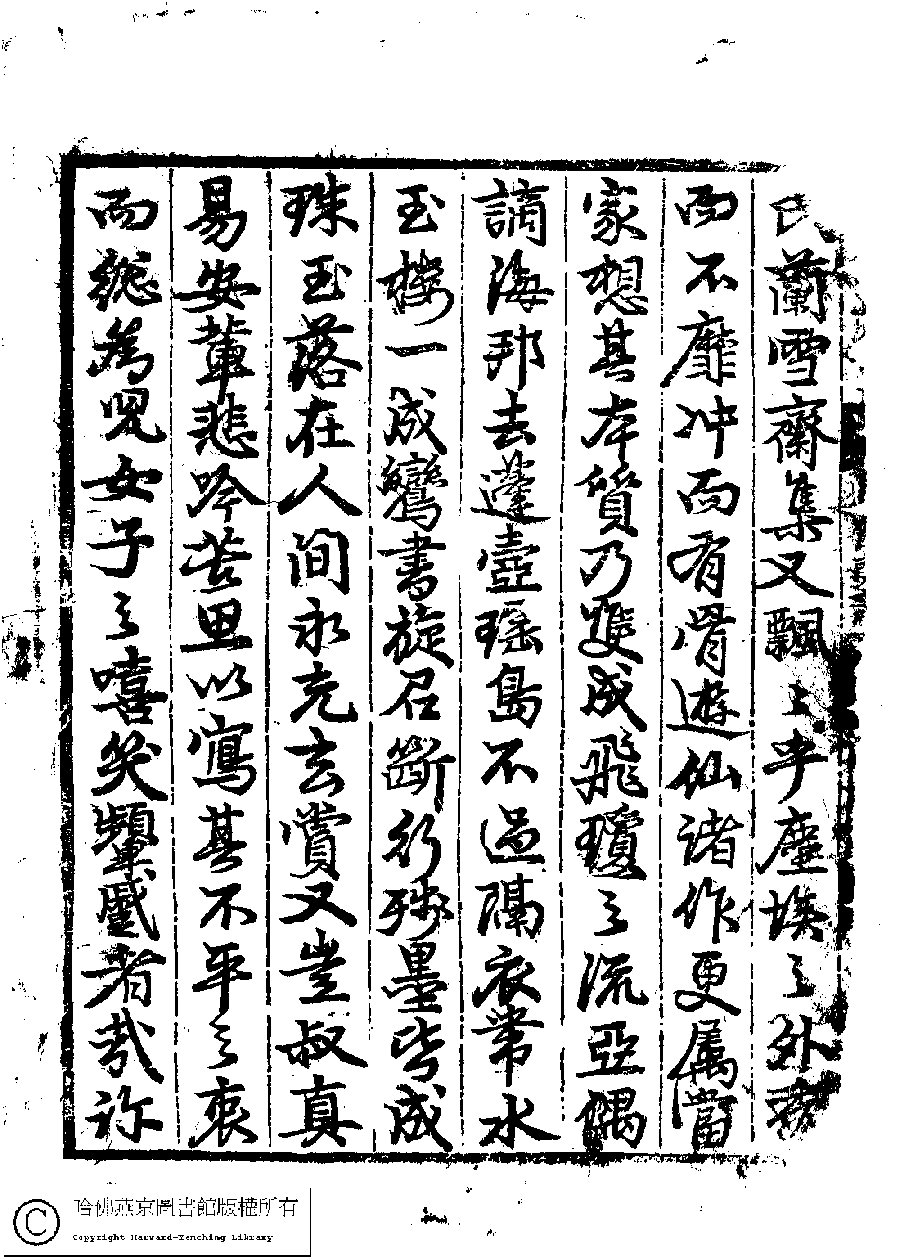 氏蘭雪齋集又飄〻乎塵埃之外秀
而不靡冲而有骨遊仙諸作更属當
家想其本質乃雙成飛瓊之流亞偶
謫海邦去蓬壺瑤島不過隔衣帶水
玉樓一成鸞書旋召斷行殘墨皆成
珠玉落在人間永充玄賞又豈叔真
易安輩悲吟苦思以寫其不平之衷
而總為兒女子之嘻笑顰蹙者哉許
哈佛燕京圖書館版權所有
Copyright Harvard-Yenching Library